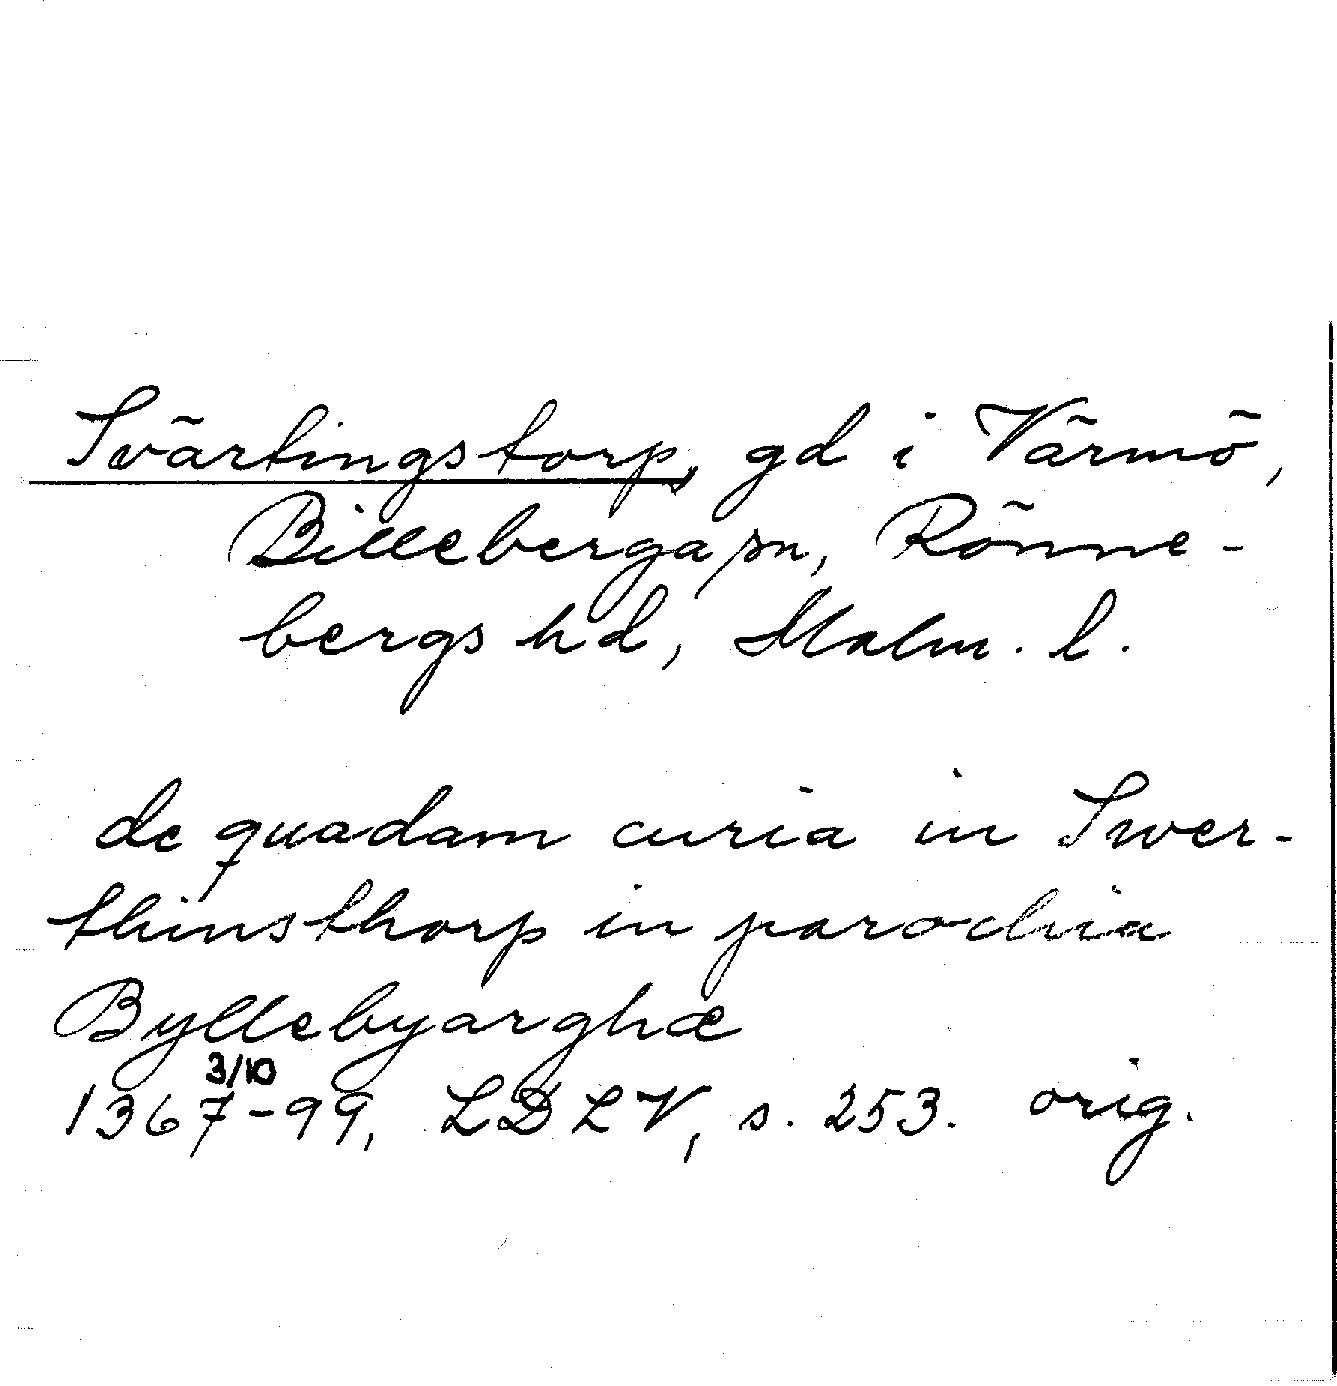 Svärtingstorp, gd i Värmö,
Billeberga sn, Rönne-
bergs hd, Malm. l.
de quadam curia in Swer-
thinsthorp in parochia
Byllebyarghæ
3/10
1367-99, LDLV, s. 253. orig.